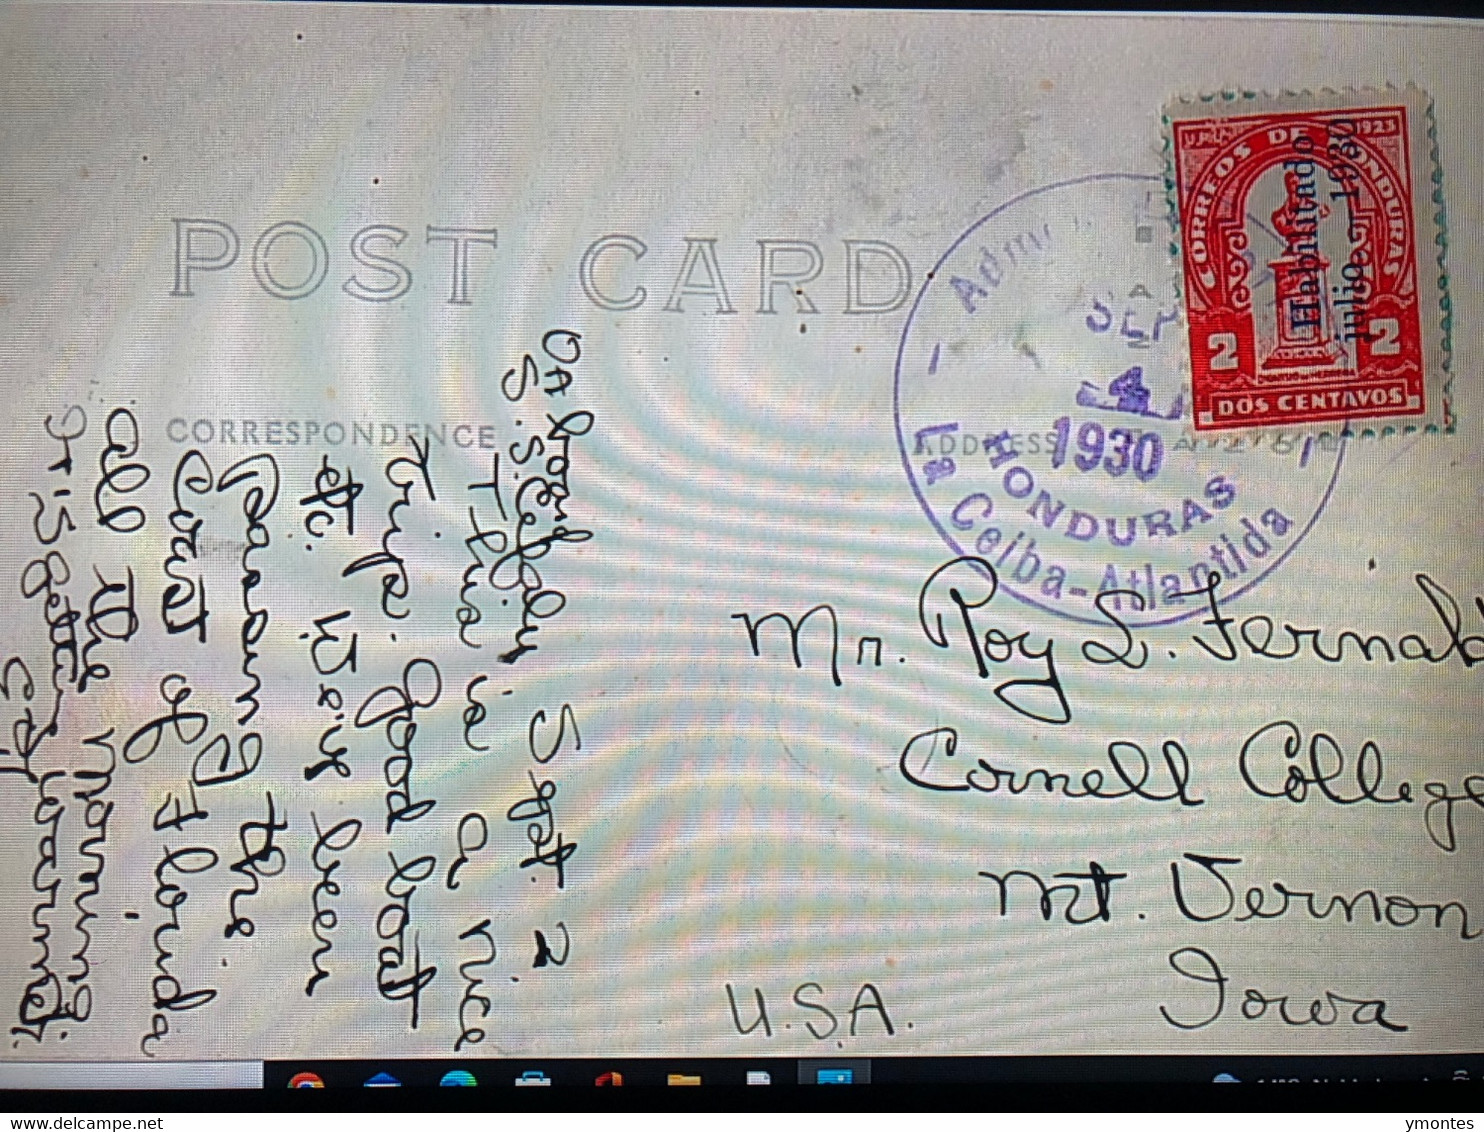 POST CARD
CORRESPONDENCE
ADDRESS
U.P.U. 1923
CORREOS DE HONDURAS
Habilitado
julio — 1930
2 2
DOS CENTAVOS
SEP
4
1930
HONDURAS
La Ceiba-Atlantida
On board
S.S. Cefalu. Sept. 2
This is a nice
trip. Good boat
etc. We've been
passing the
coast of Florida
all the morning.
It is getting warmer.
Mr. Roy L. Fernald
Cornell College
Mt. Vernon
Iowa
U.S.A.
delcampe.net
ymontes